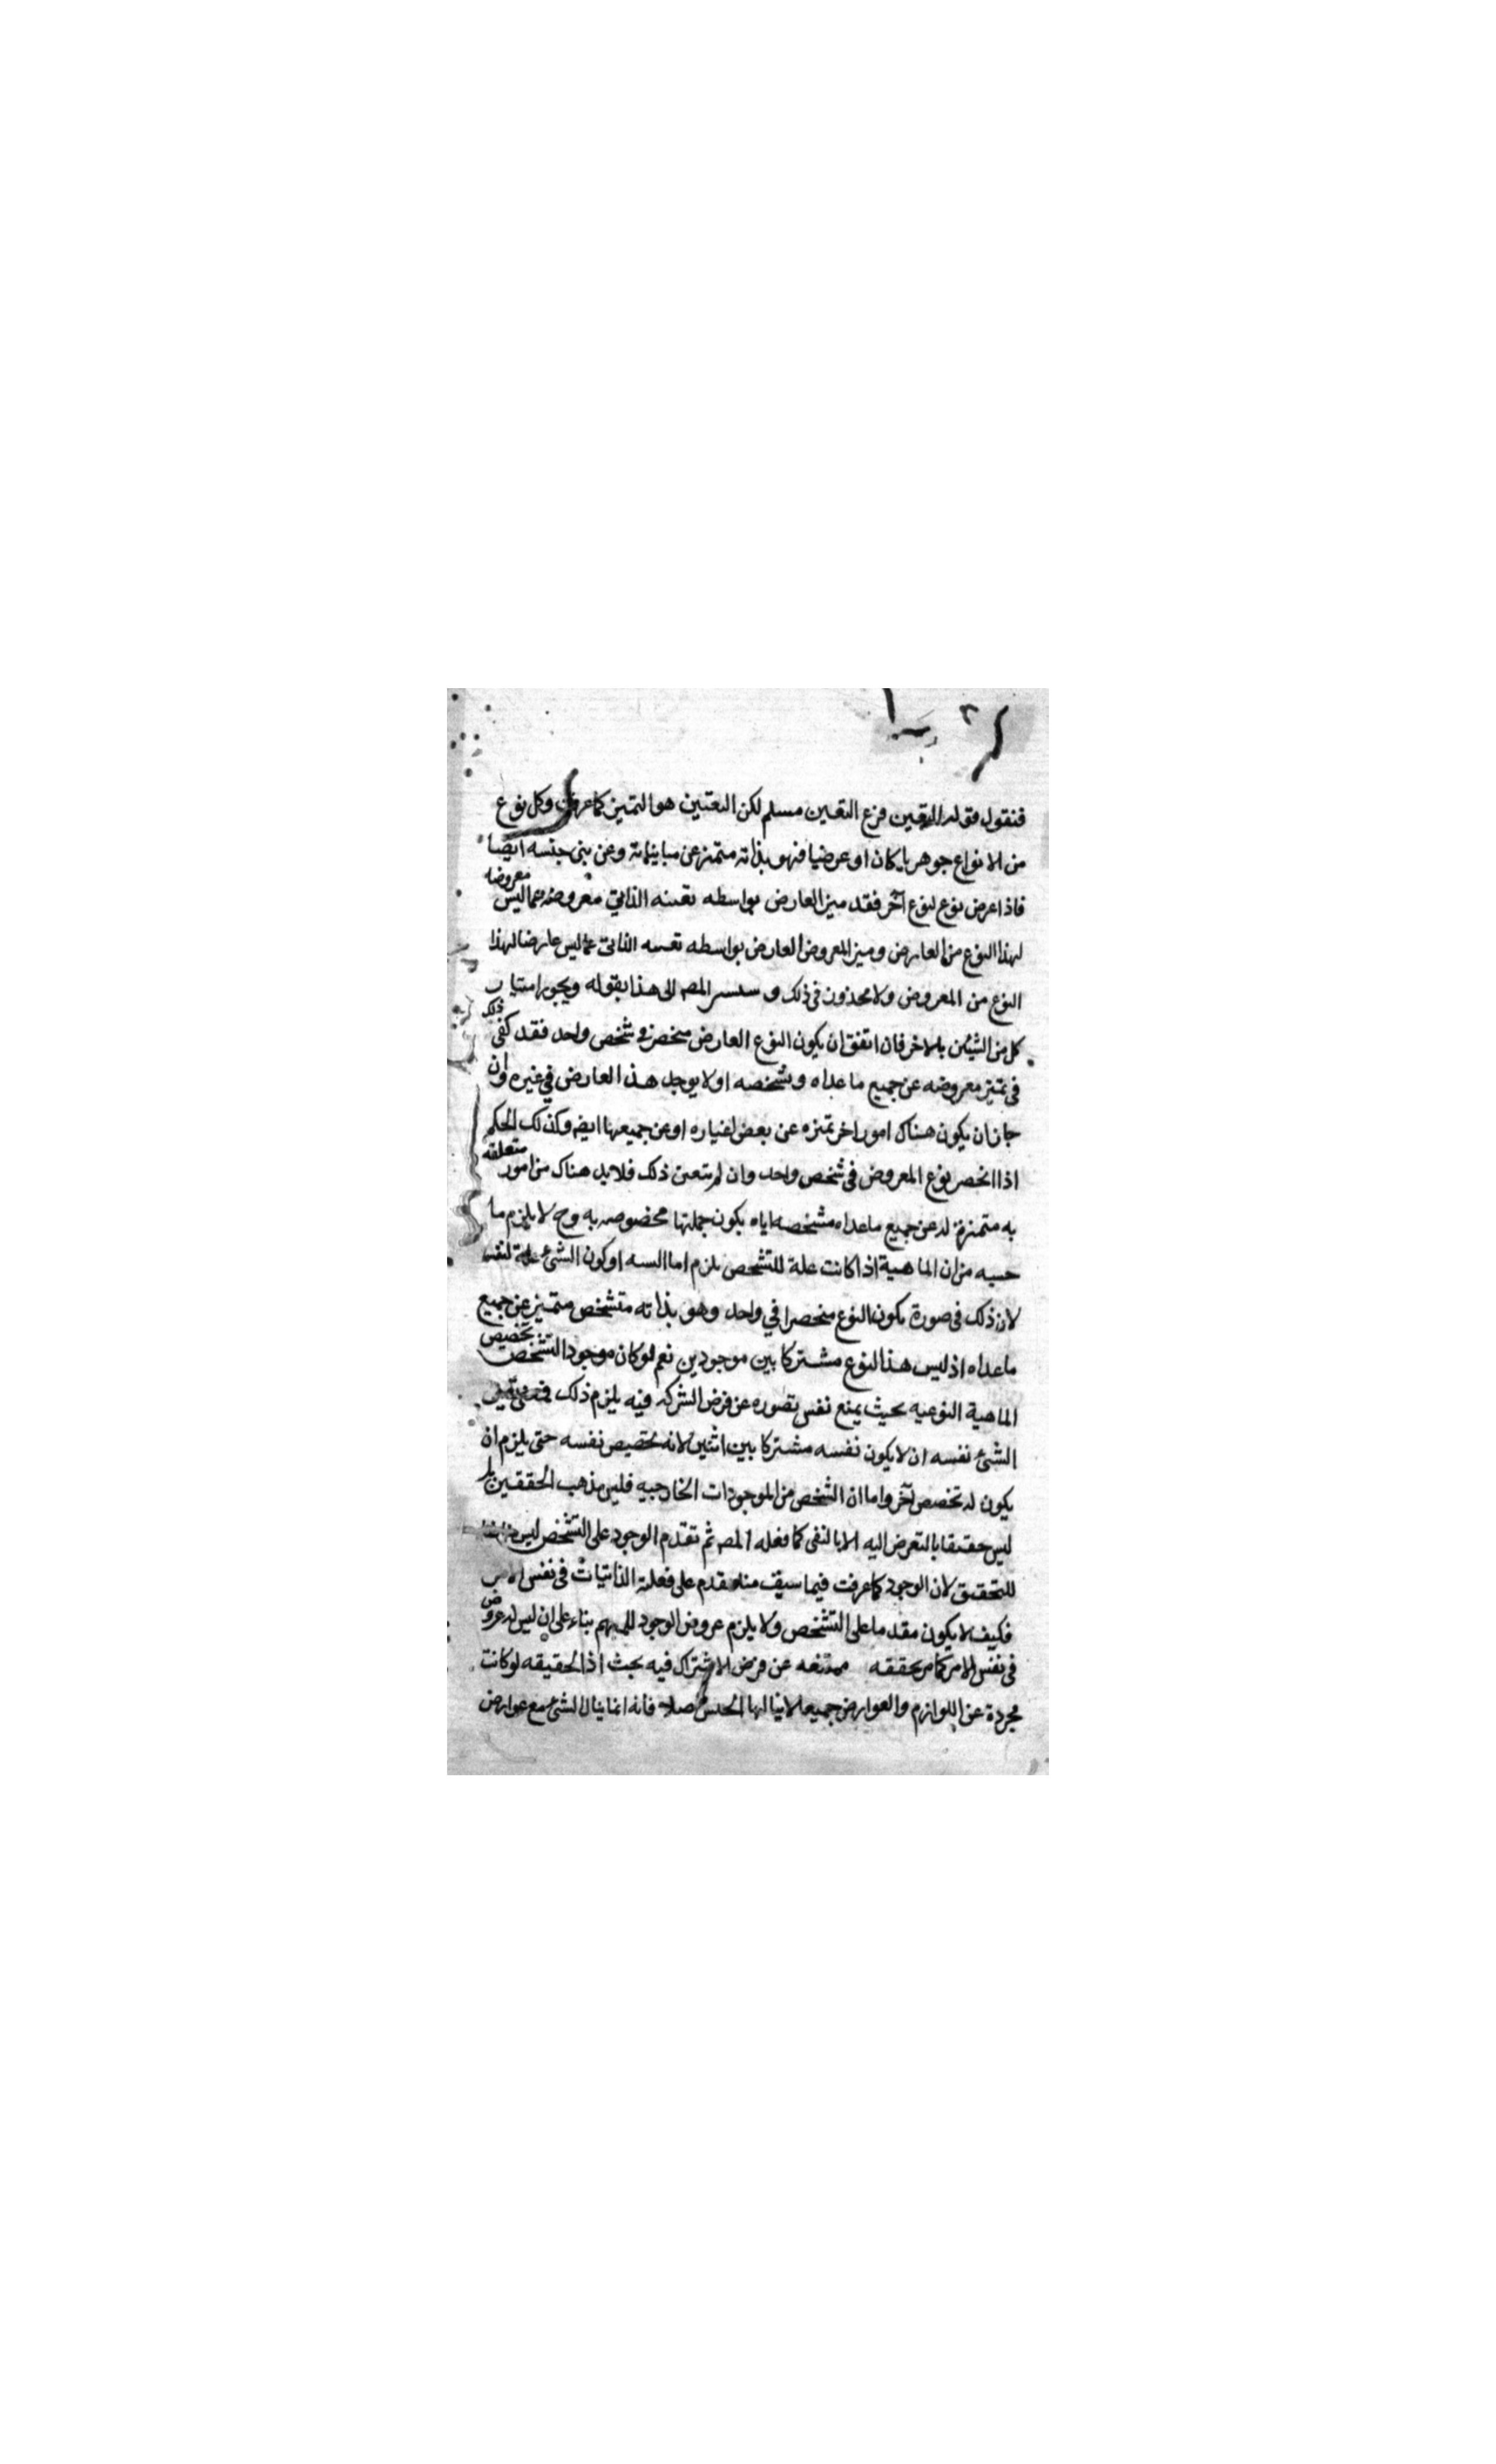 فنقول قوله التعين فرع التعين مسلم لكن التعين هو التميز كما عرفت وكل نوع
من الانواع جوهريا كان او عرضيا فهو بذاته متميز عن مبايناته وعن بني جنسه ايضا
فاذا عرض نوع لنوع آخر فقد ميز العارض بواسطه تعينه الذاتي معروضه عما ليس معروضا
لهذا النوع من العارض وميز المعروض العارض بواسطه تعينه الذاتي عما ليس عارضا لهذا
النوع من المعروض ولا محذور في ذلك و المص الى هذا بقوله ويجوز امتياز
كل من الشيئين بالاخر فان اتفق ان يكون النوع العارض منحصر في شخص واحد فقد كفى ذلك
في تميز معروضه عن جميع ما عداه وتشخصه او لا يوجد هذا العارض في غيره وان
جاز ان يكون هناك امور اخر تميزه عن بعض اغياره او عن جميعها ايضا وكذلك الحكم
اذا انحصر نوع المعروض في شخص واحد وان لم يتعين ذلك فلابد هناك من امور متعلقه
به متميزة له عن جميع ما عداه مشخصه اياه يكون جملتها مخصوصه به وح لا يلزم ما
حسبه من ان الماهية اذا كانت علة للتشخص يلزم اما او كون الشئ علة لنفسه
لان ذلك في صورة يكون النوع منحصرا في واحد وهو بذاته متشخص متميز عن جميع
ما عداه اذ ليس هذا النوع مشتركا بين موجودين نعم لو كان موجودا لتشخص تخصيص
الماهية النوعيه بحيث يمنع نفس تصوره عن فرض الشركه فيه يلزم ذلك
الشئ نفسه ان لا يكون نفسه مشتركا بين اثنين لانه تخصيص نفسه حتى يلزم ان
يكون له تخصص آخر واما ان الشخص من الموجودات الخارجيه فليس مذهب المحققين بل
ليس حقيقا بالتعرض اليه الا بالنفى كما فعله المص ثم تقدم الوجود على التشخص ليس
للتحقيق لان الوجود كما عرفت فيما سبق منا مقدم على فعلية الذاتيات في نفس الامر
فكيف لا يكون مقدما على التشخص ولا يلزم عروض الوجود للمبهم بناء على ان ليس له عروض
في نفس الامر كما مر تحقيقه ممتنعه عن فرض الاشتراك فيه بحث اذ الحقيقه لو كانت
مجردة عن اللوازم والعوارض جميعا لا ينالها الحس اصلا فانه انما ينال الشئ مع عوارض